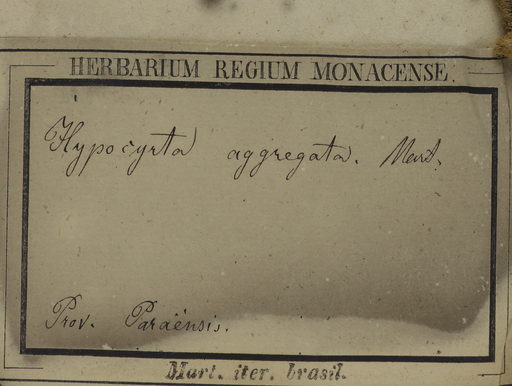 HERBARIUM REGIUM MONACENSE.
Hypocyrta aggregata. Mart.
Prov. Paraënsis.
Mart. iter. brasil.